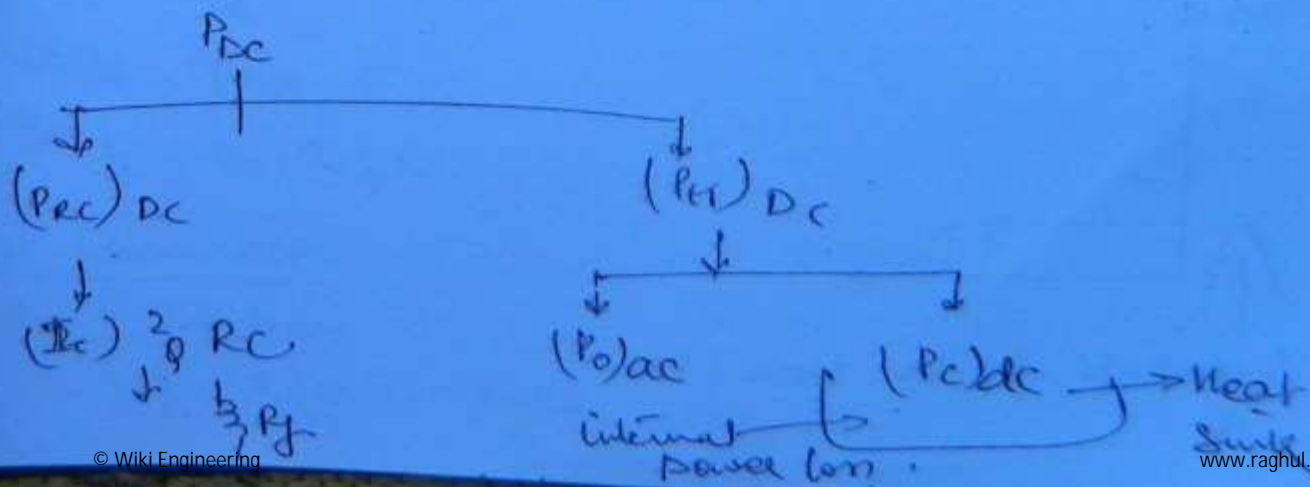 PDC
(PRC) DC
(PtT) DC
(Ic)²Q RC
(Po)ac
(Pc)dc → Heat
Sink
internal
power loss.
© Wiki Engineering
www.raghul.